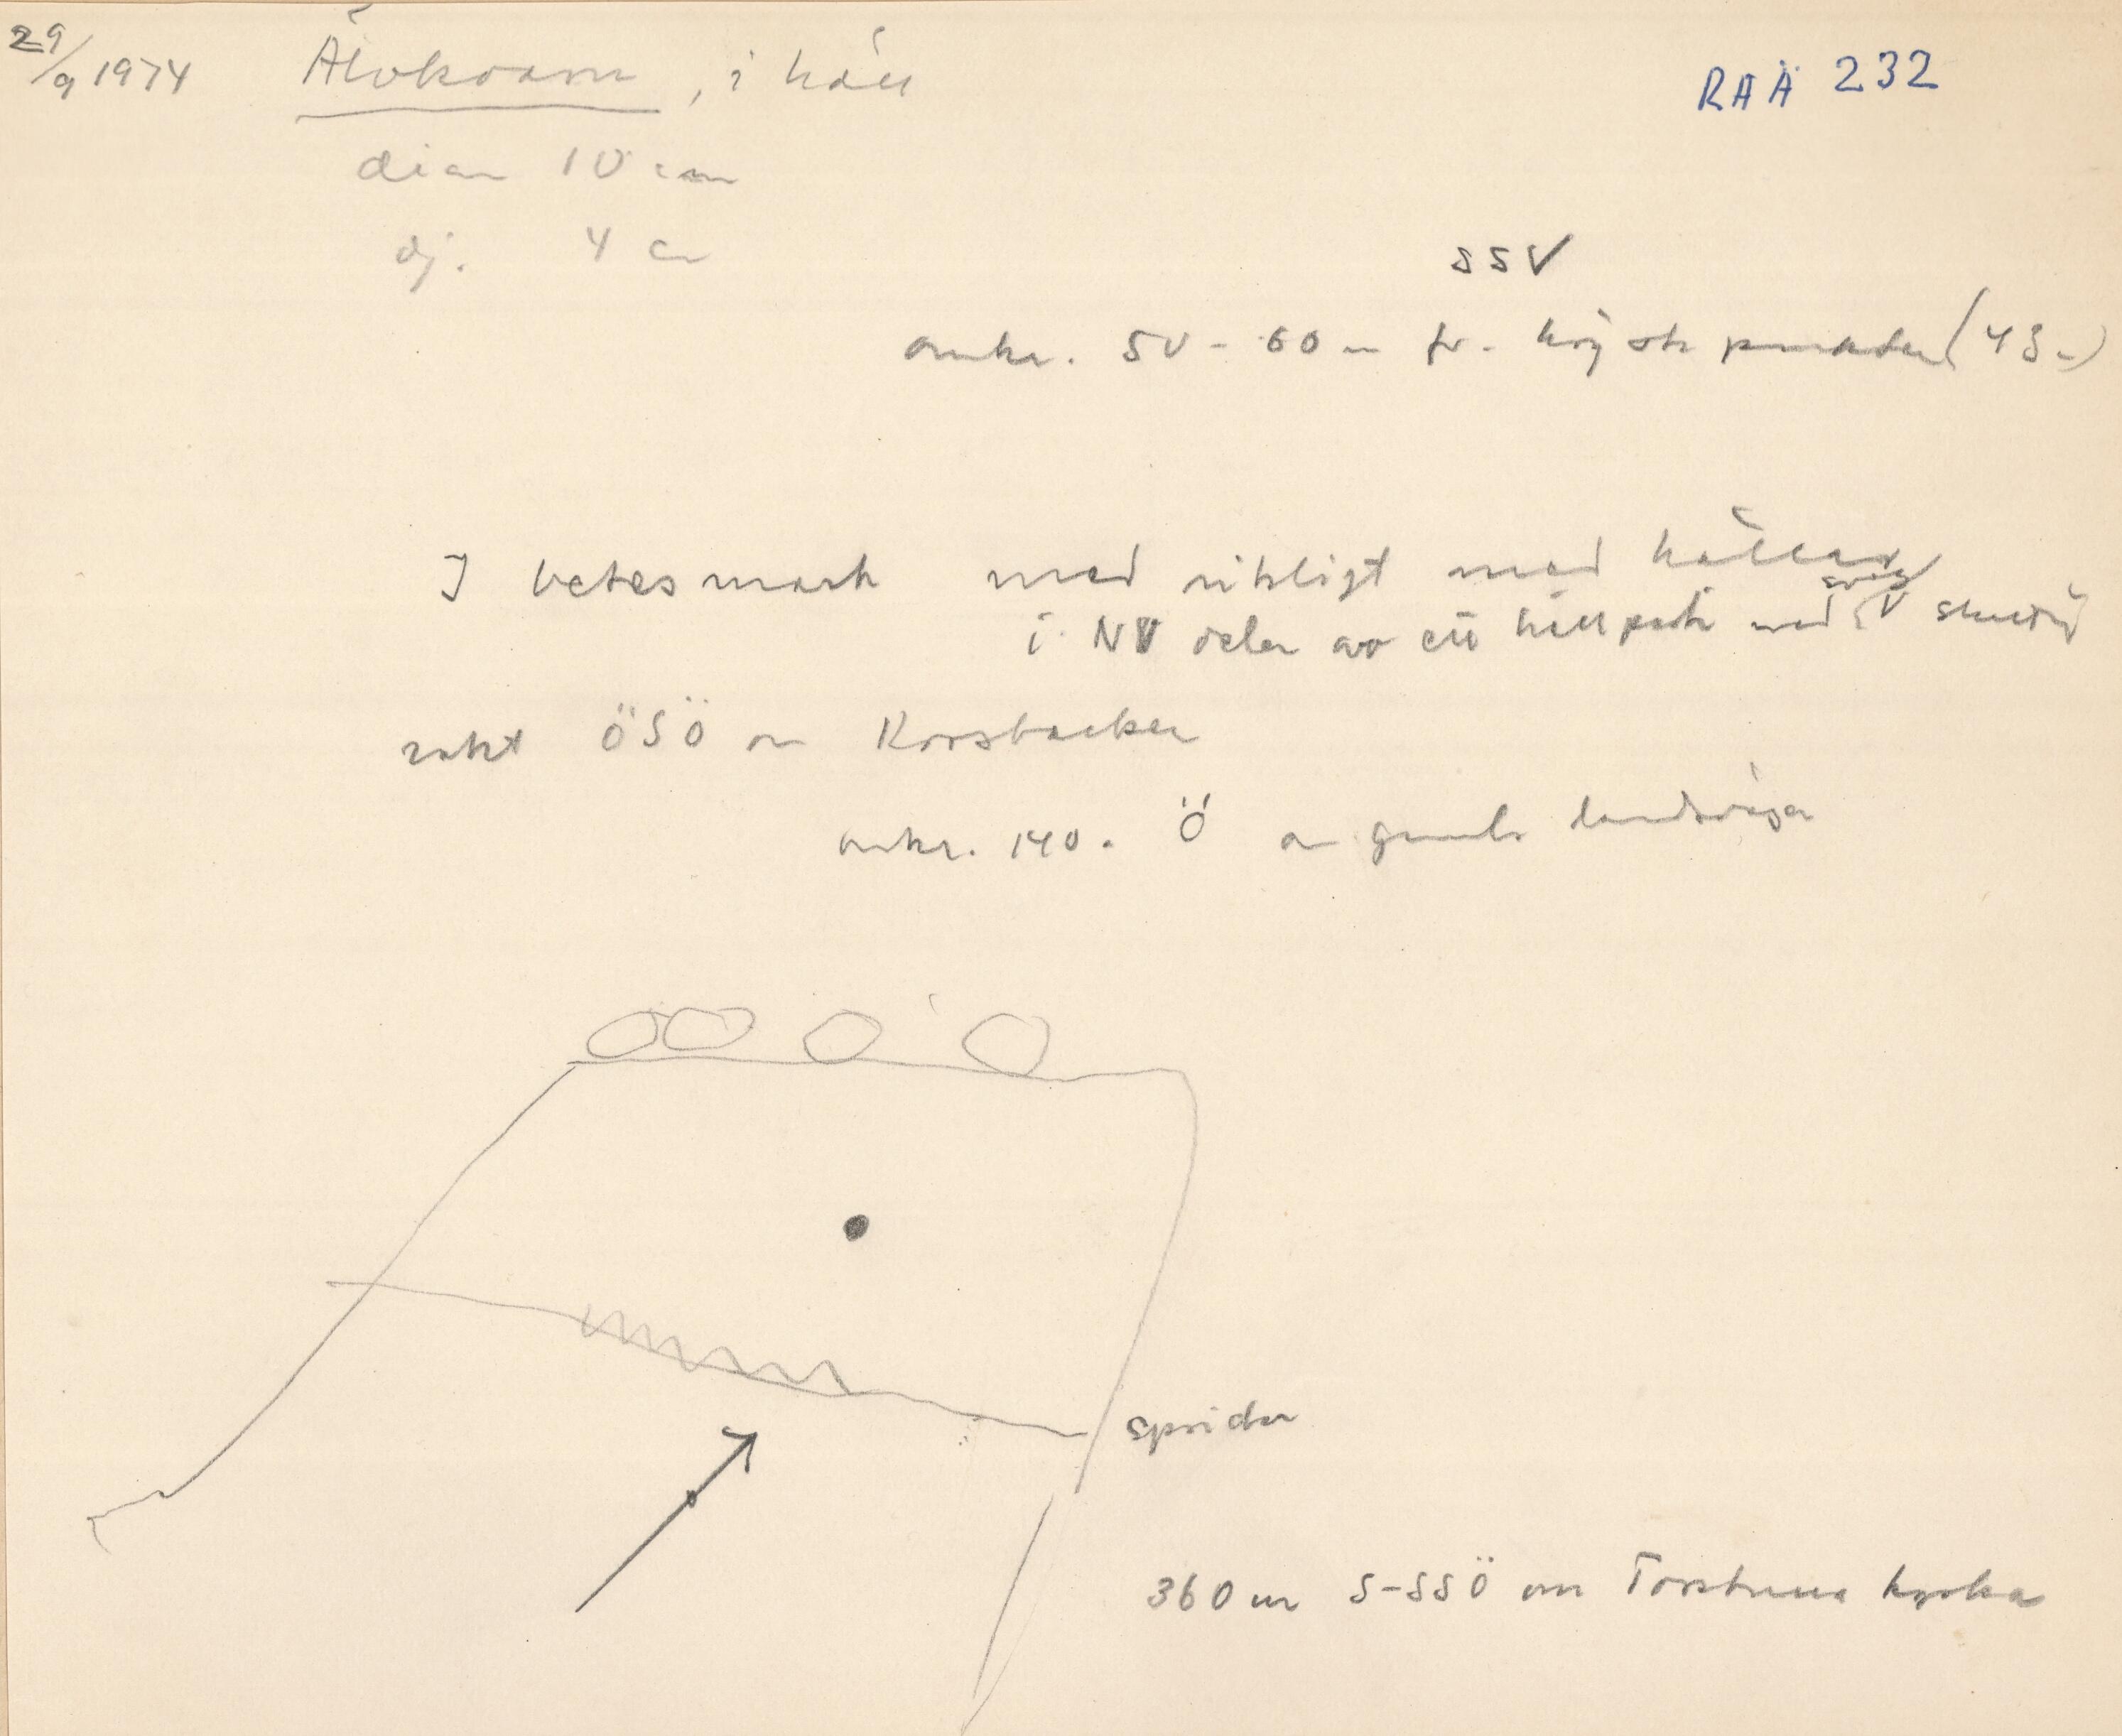 29/9 1974 Älvkvarn, i häll
RAÄ 232
diam 10 cm
dj. 4 cm
SSV
omkr. 50-60 m fr. högsta punkten (43 m)
I betesmark med rikligt med hällar
i NV delen av ett hällparti med svag V sluttn
rakt ÖSÖ om Korsbacken
omkr. 140 m Ö om gamla landsvägen
sprickor
360 m S-SSÖ om Torstuna kyrka